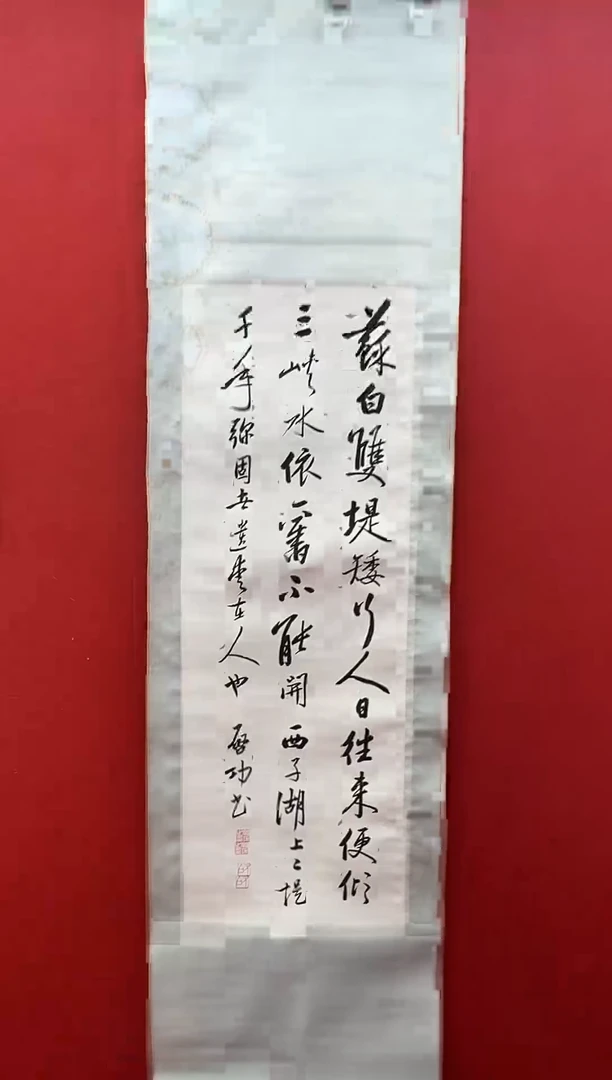 蘇白雙堤矮行人日往來便傾
三峽水依舊不能開西子湖上二堤
千年弥固無遺愛在人也 啟功書